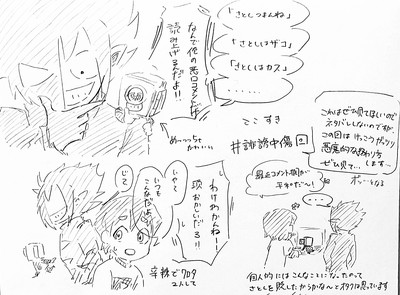 「さとしつまんね」
「さとしはザコ」
「さとしはカス」
・・・・・
なんで俺の悪口コメントばっか
読み上げるんだよ!!
めーっっちゃ
かわいい
ここすき
#誹謗中傷回
これはぜひ見てほしいので
ネタバレしないのですが、
この回は けっこうガッツリ
悪質的な終わり方
します
ぜひ見て…
わけわかんねー!
頭おかしいだろ!!
いやて
いつも
こんなだよ
じて
辛辣でワロタ
2人して
最近コメント欄が
平和だな〜!
…
個人的にはこんなことになったので
さとしを殺したからかな〜んと
思っています